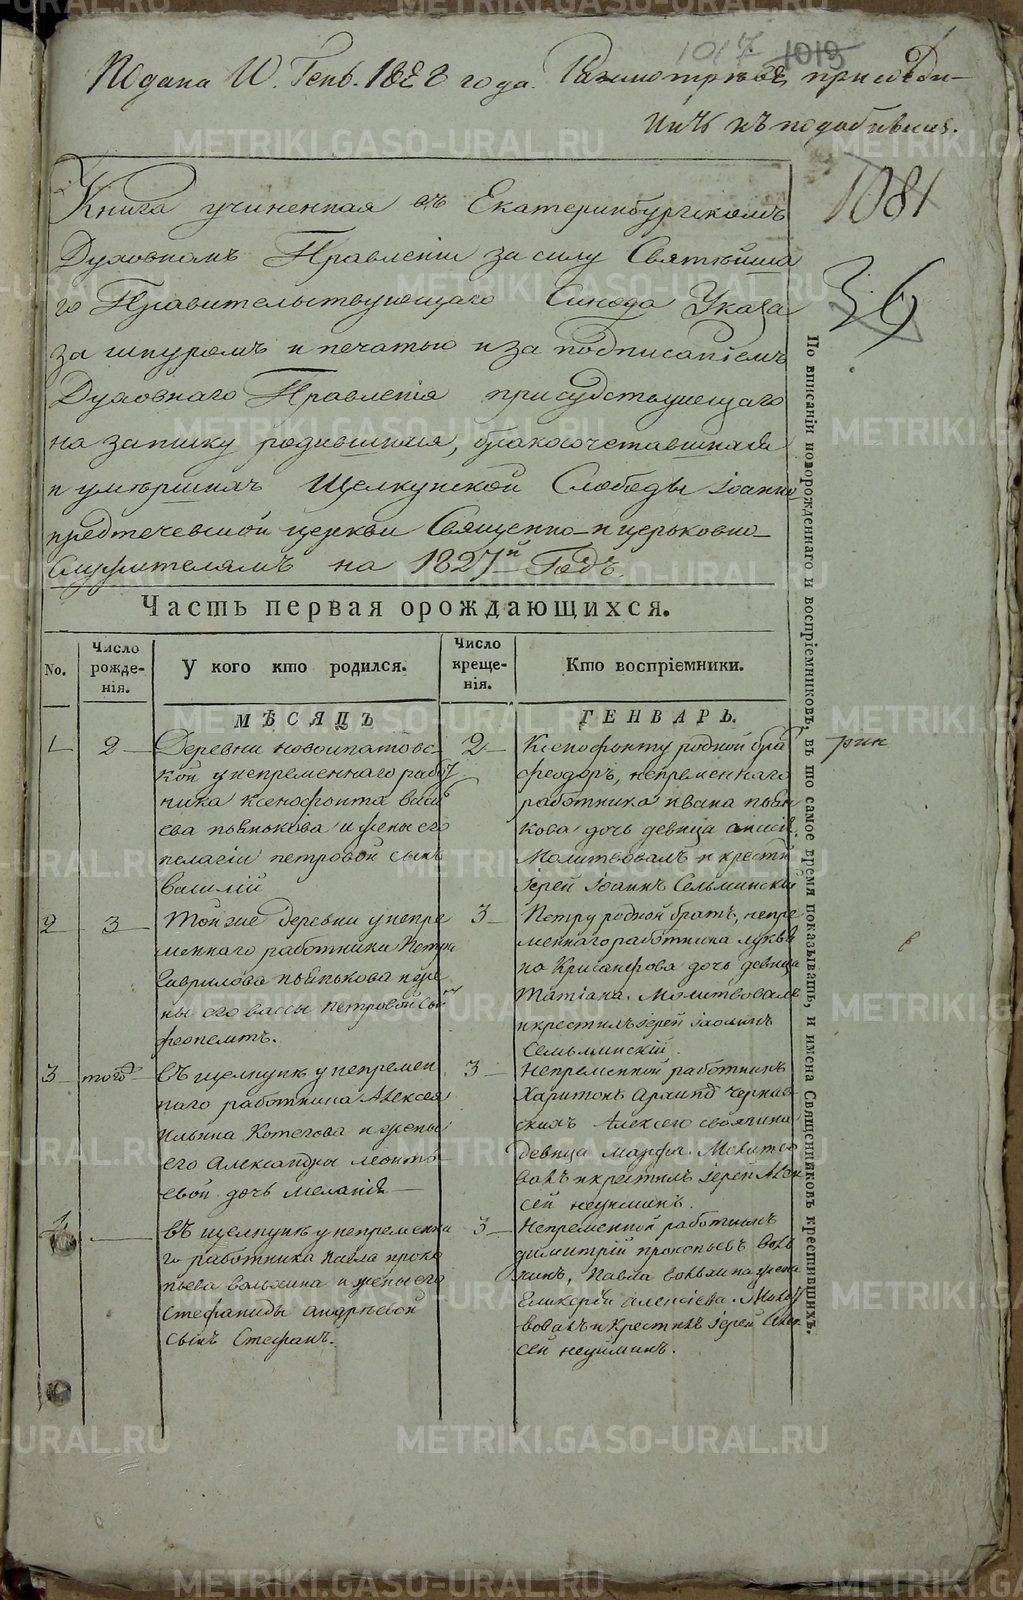 1017 1019
Подана 10. Генв. 1828 года. Разсмотрѣвъ, присоеди-
нить къ подобнымъ.
1081
36
Книга учиненная въ Екатеринбургскомъ
Духовномъ Правленіи за силу Святѣйша
го Правительствующаго Синода Указа
за шнуромъ и печатью и за подписаніемъ
Духовнаго Правленія присудствующаго
на записку родившихся, бракосочетавшихся
и умершихъ Щелкунской Слободы Іоанно
предтечевской церкви Священно-и церьковно-
Служителямъ на 1827й Годъ.
Часть первая орождающихся.
No. Число рожде-нія. У кого кто родился. Число креще-нія. Кто воспріемники.
МѢСЯЦЪ ГЕНВАРЬ.
1 2 Деревни новоипатовс-
кой у непременнаго рабо
тника ксенофонта васи
ева пьянкова и жены его
пелагіи петровой сынъ
василій
2 Ксенофонту родной бра
феодоръ, непременнаго
работника ивана пьян
кова дочь девица
Молитвовалъ и крести
Іерей Іоаннъ Сельминскій
2 3 Той же деревни у непре
меннаго работника Петра
Гаврилова пьянкова и же
ны его вассы петровой сын
феопемптъ.
3 Петру родной братъ, непре
меннаго работника лукья
на Крисанфова дочь девица
Татіана. Молитвовалъ
и крестилъ іерей Іоаннъ
Семьлминскій.
3 того В щелкунѣ у непремен
наго работника Алексея
Ильина Котегова и жены
его Александры леонть
евой дочь меланія
3 Непременной работникъ
Харитонъ Чернав
скихъ Алексею своячина
девица марфа. Молитво
валъ и крестилъ іерей Алек
сей неуйминъ.
4 въ щелкунѣ у непременна
го работника павла проко
пьева вольхина и жены его
Стефаниды андреевой
сынъ Стефанъ.
3 Непременной работникъ
димитрій прокопьевъ воль
хинъ, павла вольхина жена
Гликерія алексіева. Молит
вовалъ и крестилъ іерей Алек
сей неуйминъ.
По вписаніи новорожденнаго и воспріемниковъ, въ то самое время показывать, и имена Священниковъ крестившихъ.